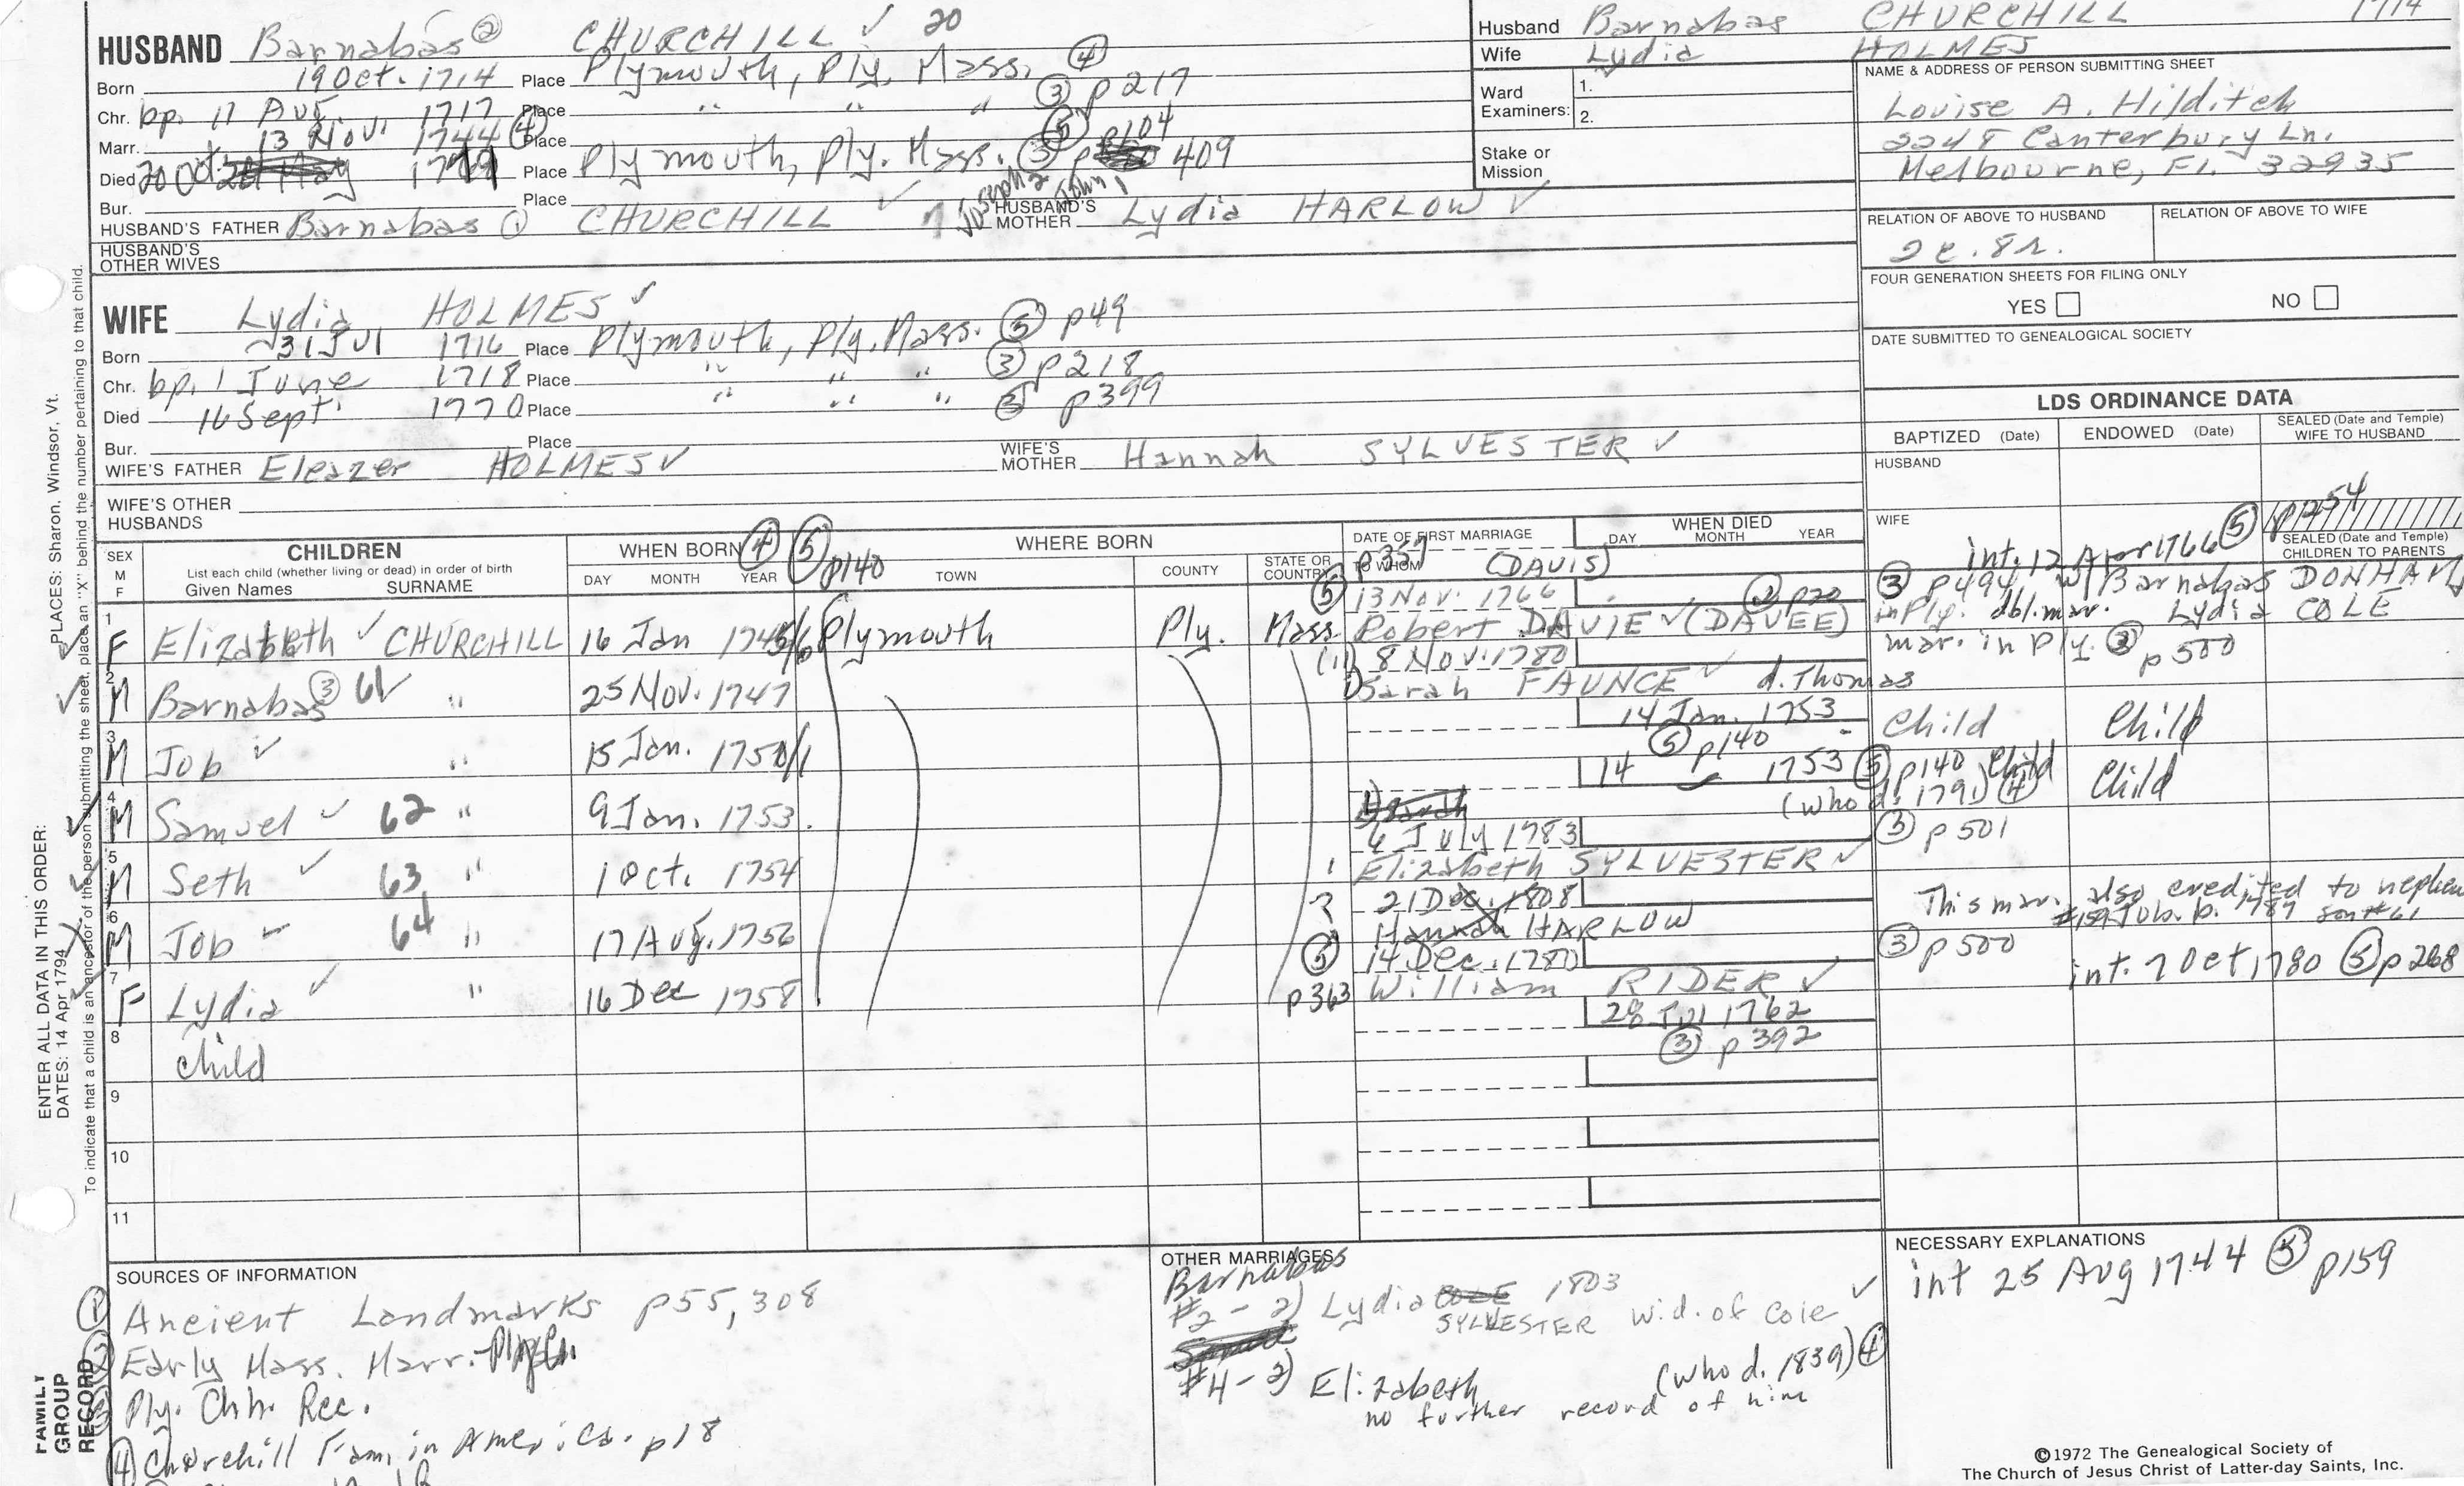 HUSBAND Barnabas ② CHURCHILL ✓ 20
Born 19 Oct. 1714 Place Plymouth, Ply. Mass. ④
Chr. bp. 11 Aug 1717 Place " " " ③ p 217
Marr. 13 Nov. 1744 ④ Place ⑤ p104
Died 20 Oct. Place Plymouth, Ply. Mass. ③ p 409
Bur. Place
HUSBAND'S FATHER Barnabas ① CHURCHILL ✓ Joseph 2 John 1 HUSBAND'S MOTHER Lydia HARLOW ✓
HUSBAND'S OTHER WIVES
Husband Barnabas CHURCHILL 1714
Wife Lydia HOLMES
Ward Examiners: 1.
2.
Stake or Mission
NAME & ADDRESS OF PERSON SUBMITTING SHEET
Louise A. Hilditch
2248 Canterbury Ln.
Melbourne, Fl. 32935
RELATION OF ABOVE TO HUSBAND RELATION OF ABOVE TO WIFE
2c. 8r.
FOUR GENERATION SHEETS FOR FILING ONLY
YES NO
DATE SUBMITTED TO GENEALOGICAL SOCIETY
WIFE Lydia HOLMES ✓
Born 31 Jul 1716 Place Plymouth, Ply. Mass. ⑤ p49
Chr. bp. 1 June 1718 Place " " " ③ p 218
Died 16 Sept. 1770 Place " " " ③ p399
Bur. Place
WIFE'S FATHER Eleazer HOLMES ✓ WIFE'S MOTHER Hannah SYLVESTER ✓
WIFE'S OTHER HUSBANDS
LDS ORDINANCE DATA
BAPTIZED (Date) ENDOWED (Date) SEALED (Date and Temple) WIFE TO HUSBAND
HUSBAND
WIFE
SEALED (Date and Temple) CHILDREN TO PARENTS
int. 12 Apr 1766 ⑤ p254
SEX M F CHILDREN
List each child (whether living or dead) in order of birth
Given Names SURNAME
WHEN BORN ④ ⑤ p140
DAY MONTH YEAR
WHERE BORN
TOWN COUNTY STATE OR COUNTRY
DATE OF FIRST MARRIAGE
TO WHOM
p357 (DAVIS)
WHEN DIED
DAY MONTH YEAR
1 F Elizabeth ✓ CHURCHILL 16 Jan 1745/6 Plymouth Ply. Mass ⑤ 13 Nov. 1766 ② p20
Robert DAVIE ✓ (DAVEE)
③ p494 w/ Barnabas DONHAM
in Ply. dbl. mar. Lydia COLE
2 M Barnabas ③ 61 ✓ " 25 Nov. 1747 (1) 8 Nov. 1780
Sarah FAUNCE ✓ d. Thomas
mar. in Ply. ③ p 500
3 M Job ✓ " 15 Jan. 1750/1 14 Jan. 1753 Child Child
⑤ p140
4 M Samuel ✓ 62 " 9 Jan. 1753 14 1753 ⑤ p140 Child Child
(who d. 1791) ④
5 M Seth ✓ 63 " 1 Oct. 1754 6 July 1783
Elizabeth SYLVESTER ✓
③ p 501
6 M Job ✓ 64 " 17 Aug. 1756 ? 21 Dec. 1808
Hannah HARLOW
This mar. also credited to nephew
#159 Job b. 1787 son #61
7 F Lydia ✓ " 16 Dec 1758 ⑤ p363 14 Dec. 1780
William RIDER ✓
③ p 500
int. 7 Oct 1780 ⑤ p 268
8 child 28 Jul 1762
③ p 392
9
10
11
SOURCES OF INFORMATION
① Ancient Landmarks p55, 308
② Early Mass. Marr.
③ Ply. Chh. Rec.
④ Churchill Fam. in America. p18
OTHER MARRIAGES
Barnabas
#2 - 2) Lydia SYLVESTER 1803 wid. of Cole ✓
#4 - 2) Elizabeth (who d. 1839) ④
no further record of him
NECESSARY EXPLANATIONS
int 25 Aug 1744 ⑤ p159
©1972 The Genealogical Society of
The Church of Jesus Christ of Latter-day Saints, Inc.
ENTER ALL DATA IN THIS ORDER: PLACES: Sharon, Windsor, Vt.
DATES: 14 Apr 1794
To indicate that a child is an ancestor of the person submitting the sheet, place an "X" behind the number pertaining to that child.
FAMILY GROUP RECORD